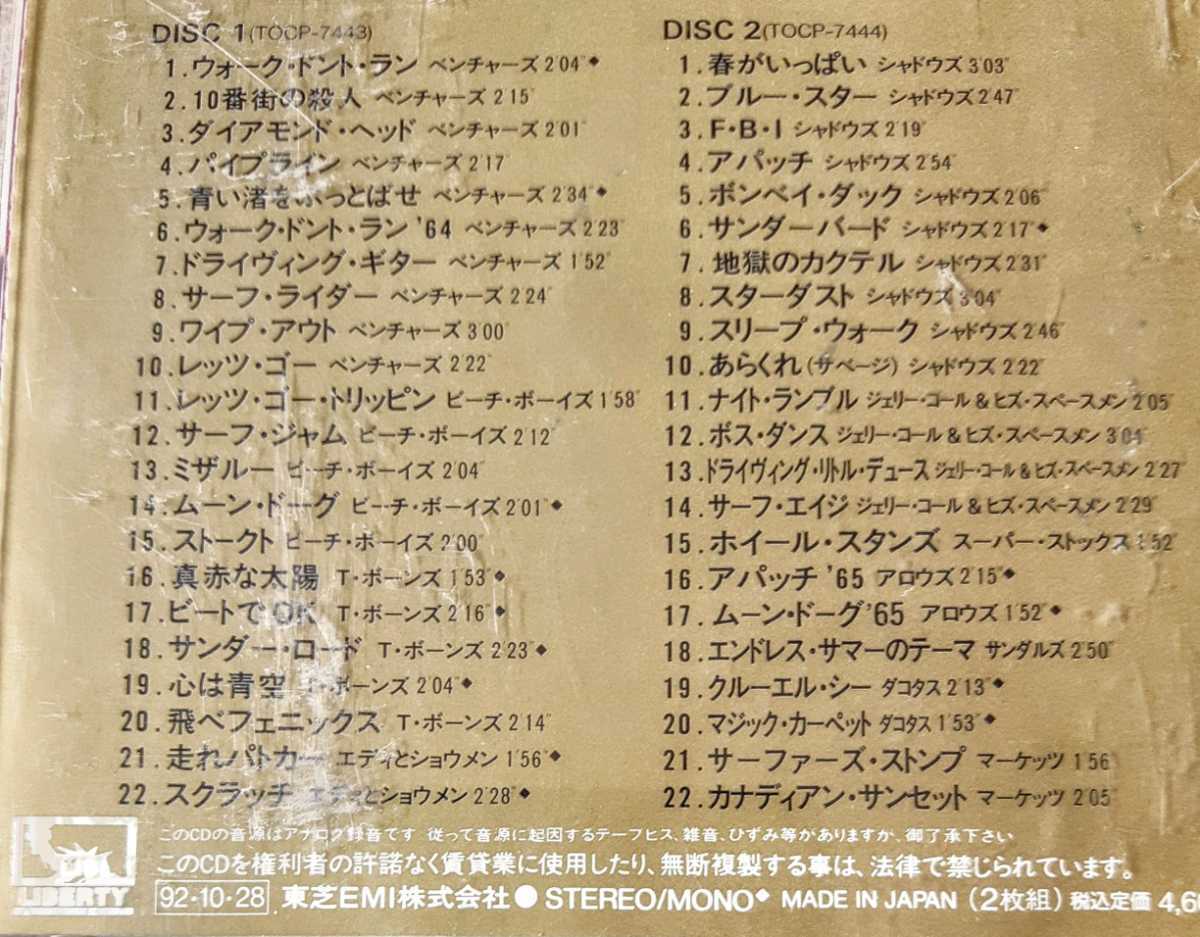 DISC 1(TOCP-7443)
1.ウォーク・ドント・ラン ベンチャーズ 2'04"◆
2.10番街の殺人 ベンチャーズ 2'15"
3.ダイアモンド・ヘッド ベンチャーズ 2'01"
4.パイプライン ベンチャーズ 2'17"
5.青い渚をぶっとばせ ベンチャーズ 2'34"◆
6.ウォーク・ドント・ラン '64 ベンチャーズ 2'23"
7.ドライヴィング・ギター ベンチャーズ 1'52"
8.サーフ・ライダー ベンチャーズ 2'24"
9.ワイプ・アウト ベンチャーズ 3'00"
10.レッツ・ゴー ベンチャーズ 2'22"
11.レッツ・ゴー・トリッピン ビーチ・ボーイズ 1'58"
12.サーフ・ジャム ビーチ・ボーイズ 2'12"
13.ミザルー ビーチ・ボーイズ 2'04"
14.ムーン・ドーグ ビーチ・ボーイズ 2'01"◆
15.ストークト ビーチ・ボーイズ 2'00"
16.真赤な太陽 T・ボーンズ 1'53"◆
17.ビートでOK T・ボーンズ 2'16"◆
18.サンダー・ロード T・ボーンズ 2'23"◆
19.心は青空 T・ボーンズ 2'04"◆
20.飛べフェニックス T・ボーンズ 2'14"
21.走れパトカー エディとショウメン 1'56"◆
22.スクラッチ エディとショウメン 2'28"◆
DISC 2(TOCP-7444)
1.春がいっぱい シャドウズ 3'03"
2.ブルー・スター シャドウズ 2'47"
3.F・B・I シャドウズ 2'19"
4.アパッチ シャドウズ 2'54"
5.ボンベイ・ダック シャドウズ 2'06"
6.サンダーバード シャドウズ 2'17"◆
7.地獄のカクテル シャドウズ 2'31"
8.スターダスト シャドウズ 3'04"
9.スリープ・ウォーク シャドウズ 2'46"
10.あらくれ(サベージ) シャドウズ 2'22"
11.ナイト・ランブル ジェリー・コール&ヒズ・スペースメン 2'05"
12.ボス・ダンス ジェリー・コール&ヒズ・スペースメン 3'01"
13.ドライヴィング・リトル・デュース ジェリー・コール&ヒズ・スペースメン 2'27"
14.サーフ・エイジ ジェリー・コール&ヒズ・スペースメン 2'29"
15.ホイール・スタンズ スーパー・ストックス 1'52"
16.アパッチ '65 アロウズ 2'15"◆
17.ムーン・ドーグ'65 アロウズ 1'52"◆
18.エンドレス・サマーのテーマ サンダルズ 2'50"
19.クルーエル・シー ダコタス 2'13"◆
20.マジック・カーペット ダコタス 1'53"◆
21.サーファーズ・ストンプ マーケッツ 1'56"
22.カナディアン・サンセット マーケッツ 2'05"
このCDの音源はアナログ録音です 従って音源に起因するテープヒス、雑音、ひずみ等がありますが、御了承下さい
このCDを権利者の許諾なく賃貸業に使用したり、無断複製する事は、法律で禁じられています。
LIBERTY
92・10・28 東芝EMI株式会社● STEREO/MONO◆ MADE IN JAPAN (2枚組) 税込定価 4,60